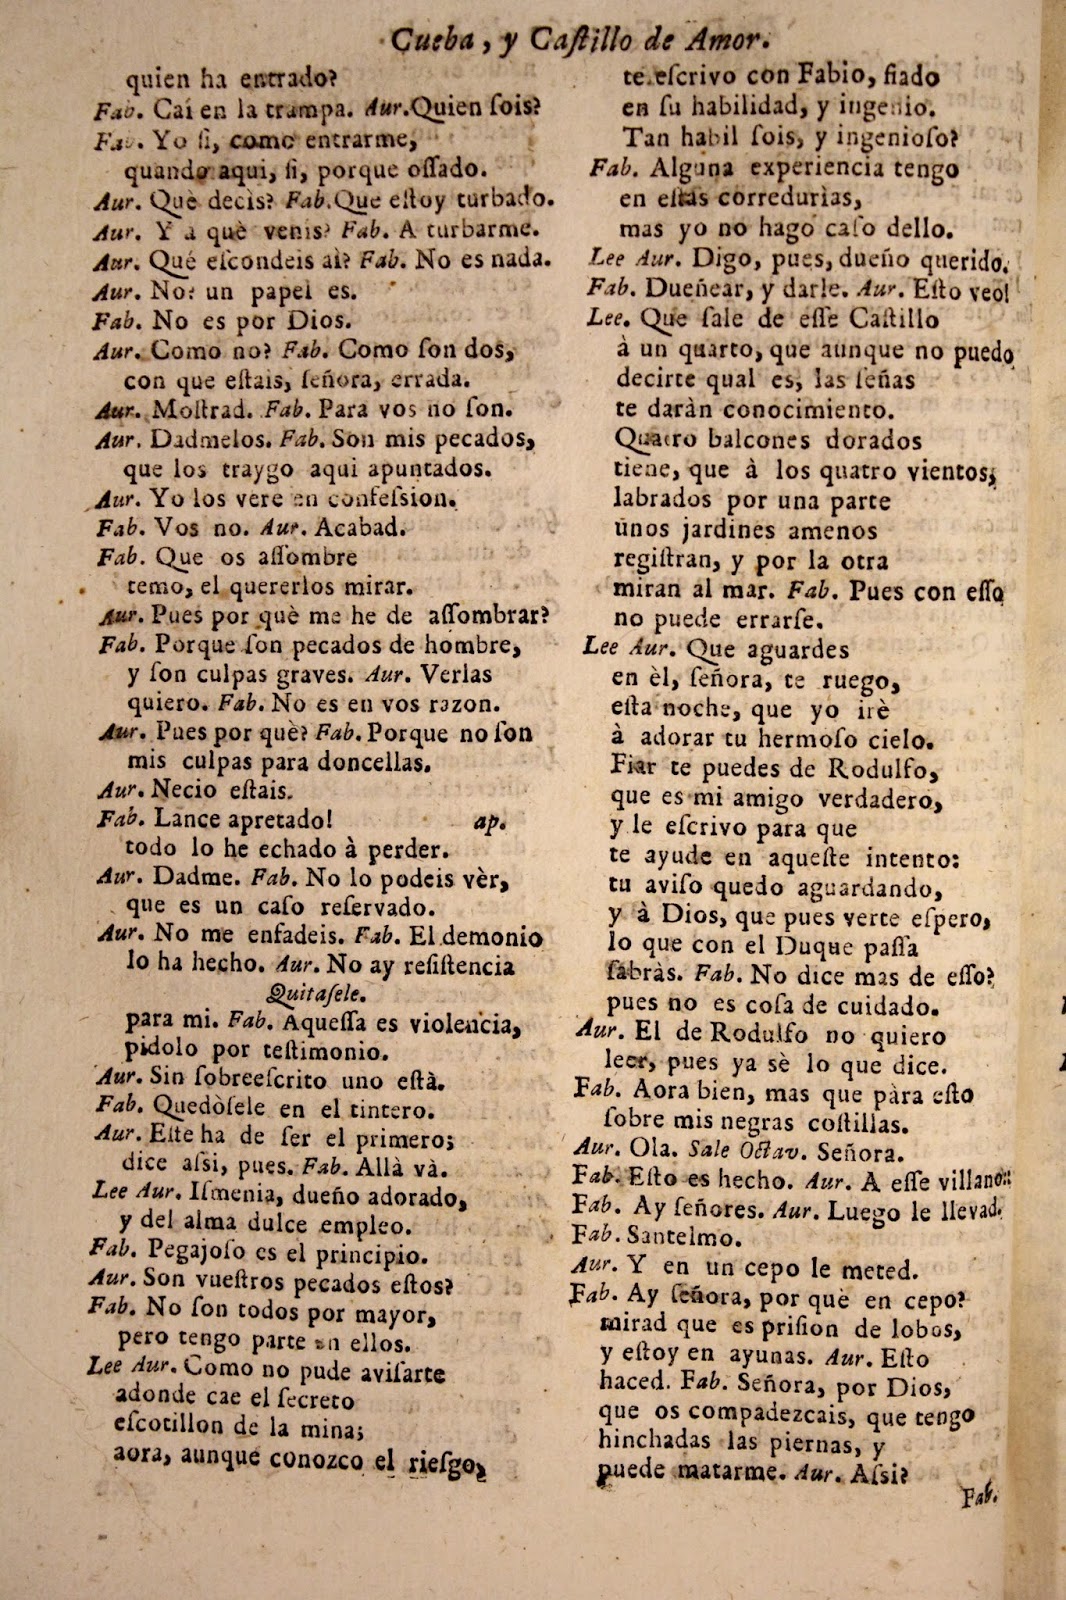 Cueba, y Caſtillo de Amor.
quien ha entrado?
Fab. Caí en la trampa. Aur. Quien ſois?
Fab. Yo ſi, como entrarme,
quando aqui, ſi, porque oſſado.
Aur. Què decis? Fab. Que eſtoy turbado.
Aur. Y à què venis? Fab. A turbarme.
Aur. Qué eſcondeis ai? Fab. No es nada.
Aur. No? un papel es.
Fab. No es por Dios.
Aur. Como no? Fab. Como ſon dos,
con que eſtais, ſeñora, errada.
Aur. Moſtrad. Fab. Para vos no ſon.
Aur. Dadmelos. Fab. Son mis pecados,
que los traygo aqui apuntados.
Aur. Yo los vere en confeſsion.
Fab. Vos no. Aur. Acabad.
Fab. Que os aſſombre
temo, el quererlos mirar.
Aur. Pues por què me he de aſſombrar?
Fab. Porque ſon pecados de hombre,
y ſon culpas graves. Aur. Verlas
quiero. Fab. No es en vos razon.
Aur. Pues por què? Fab. Porque no ſon
mis culpas para doncellas.
Aur. Necio eſtais.
Fab. Lance apretado! ap.
todo lo he echado à perder.
Aur. Dadme. Fab. No lo podeis vèr,
que es un caſo reſervado.
Aur. No me enfadeis. Fab. El demonio
lo ha hecho. Aur. No ay reſiſtencia
Quitaſele.
para mi. Fab. Aqueſſa es violencia,
pidolo por teſtimonio.
Aur. Sin ſobreeſcrito uno eſtà.
Fab. Quedòſele en el tintero.
Aur. Eſte ha de ſer el primero;
dice aſsi, pues. Fab. Allà và.
Lee Aur. Iſmenia, dueño adorado,
y del alma dulce empleo.
Fab. Pegajoſo es el principio.
Aur. Son vueſtros pecados eſtos?
Fab. No ſon todos por mayor,
pero tengo parte en ellos.
Lee Aur. Como no pude aviſarte
adonde cae el ſecreto
eſcotillon de la mina;
aora, aunque conozco el rieſgo,
te eſcrivo con Fabio, fiado
en ſu habilidad, y ingenio.
Tan habil ſois, y ingenioſo?
Fab. Alguna experiencia tengo
en eſtas corredurias,
mas yo no hago caſo dello.
Lee Aur. Digo, pues, dueño querido.
Fab. Dueñear, y darle. Aur. Eſto veo!
Lee. Que ſale de eſſe Caſtillo
à un quarto, que aunque no puedo
decirte qual es, las ſeñas
te daràn conocimiento.
Quatro balcones dorados
tiene, que à los quatro vientos,
labrados por una parte
unos jardines amenos
regiſtran, y por la otra
miran al mar. Fab. Pues con eſſo
no puede errarſe.
Lee Aur. Que aguardes
en èl, ſeñora, te ruego,
eſta noche, que yo irè
à adorar tu hermoſo cielo.
Fiar te puedes de Rodulfo,
que es mi amigo verdadero,
y le eſcrivo para que
te ayude en aqueſte intento:
tu aviſo quedo aguardando,
y à Dios, que pues verte eſpero,
lo que con el Duque paſſa
ſabràs. Fab. No dice mas de eſſo?
pues no es coſa de cuidado.
Aur. El de Rodulfo no quiero
leer, pues ya sè lo que dice.
Fab. Aora bien, mas que pàra eſto
ſobre mis negras coſtillas.
Aur. Ola. Sale Octav. Señora.
Fab. Eſto es hecho. Aur. A eſſe villano::
Fab. Ay ſeñores. Aur. Luego le llevad.
Fab. Santelmo.
Aur. Y en un cepo le meted.
Fab. Ay ſeñora, por què en cepo?
mirad que es priſion de lobos,
y eſtoy en ayunas. Aur. Eſto
haced. Fab. Señora, por Dios,
que os compadezcais, que tengo
hinchadas las piernas, y
puede matarme. Aur. Aſsi?
Fab.